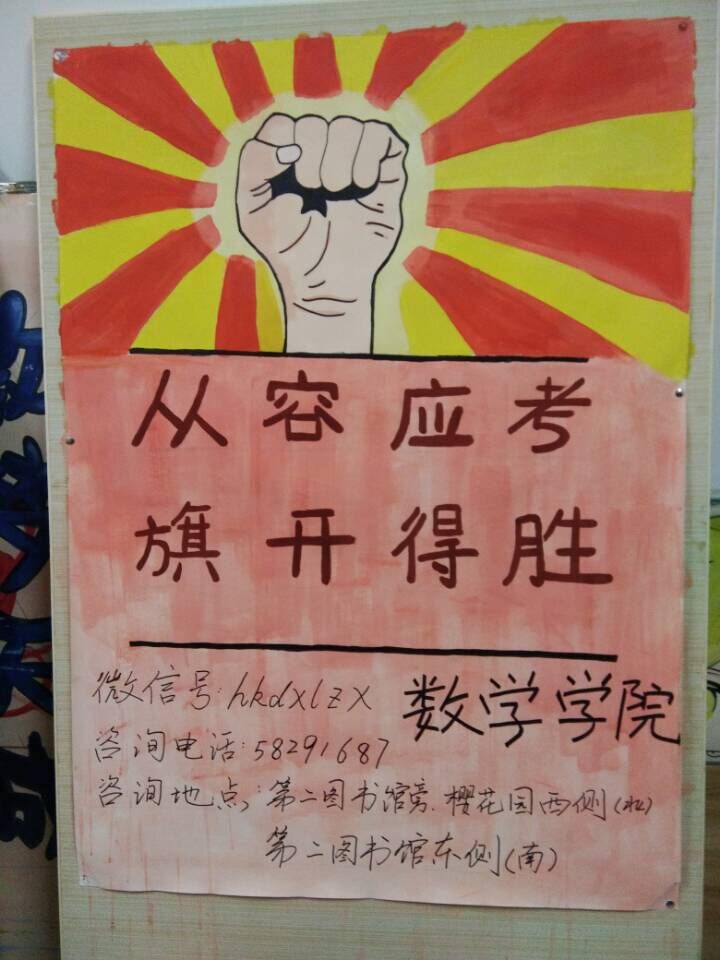 从容应考
旗开得胜
微信号:hkdxlzx
数学学院
咨询电话:58291687
咨询地点:第二图书馆旁.樱花园西侧(北)
第二图书馆东侧(南)